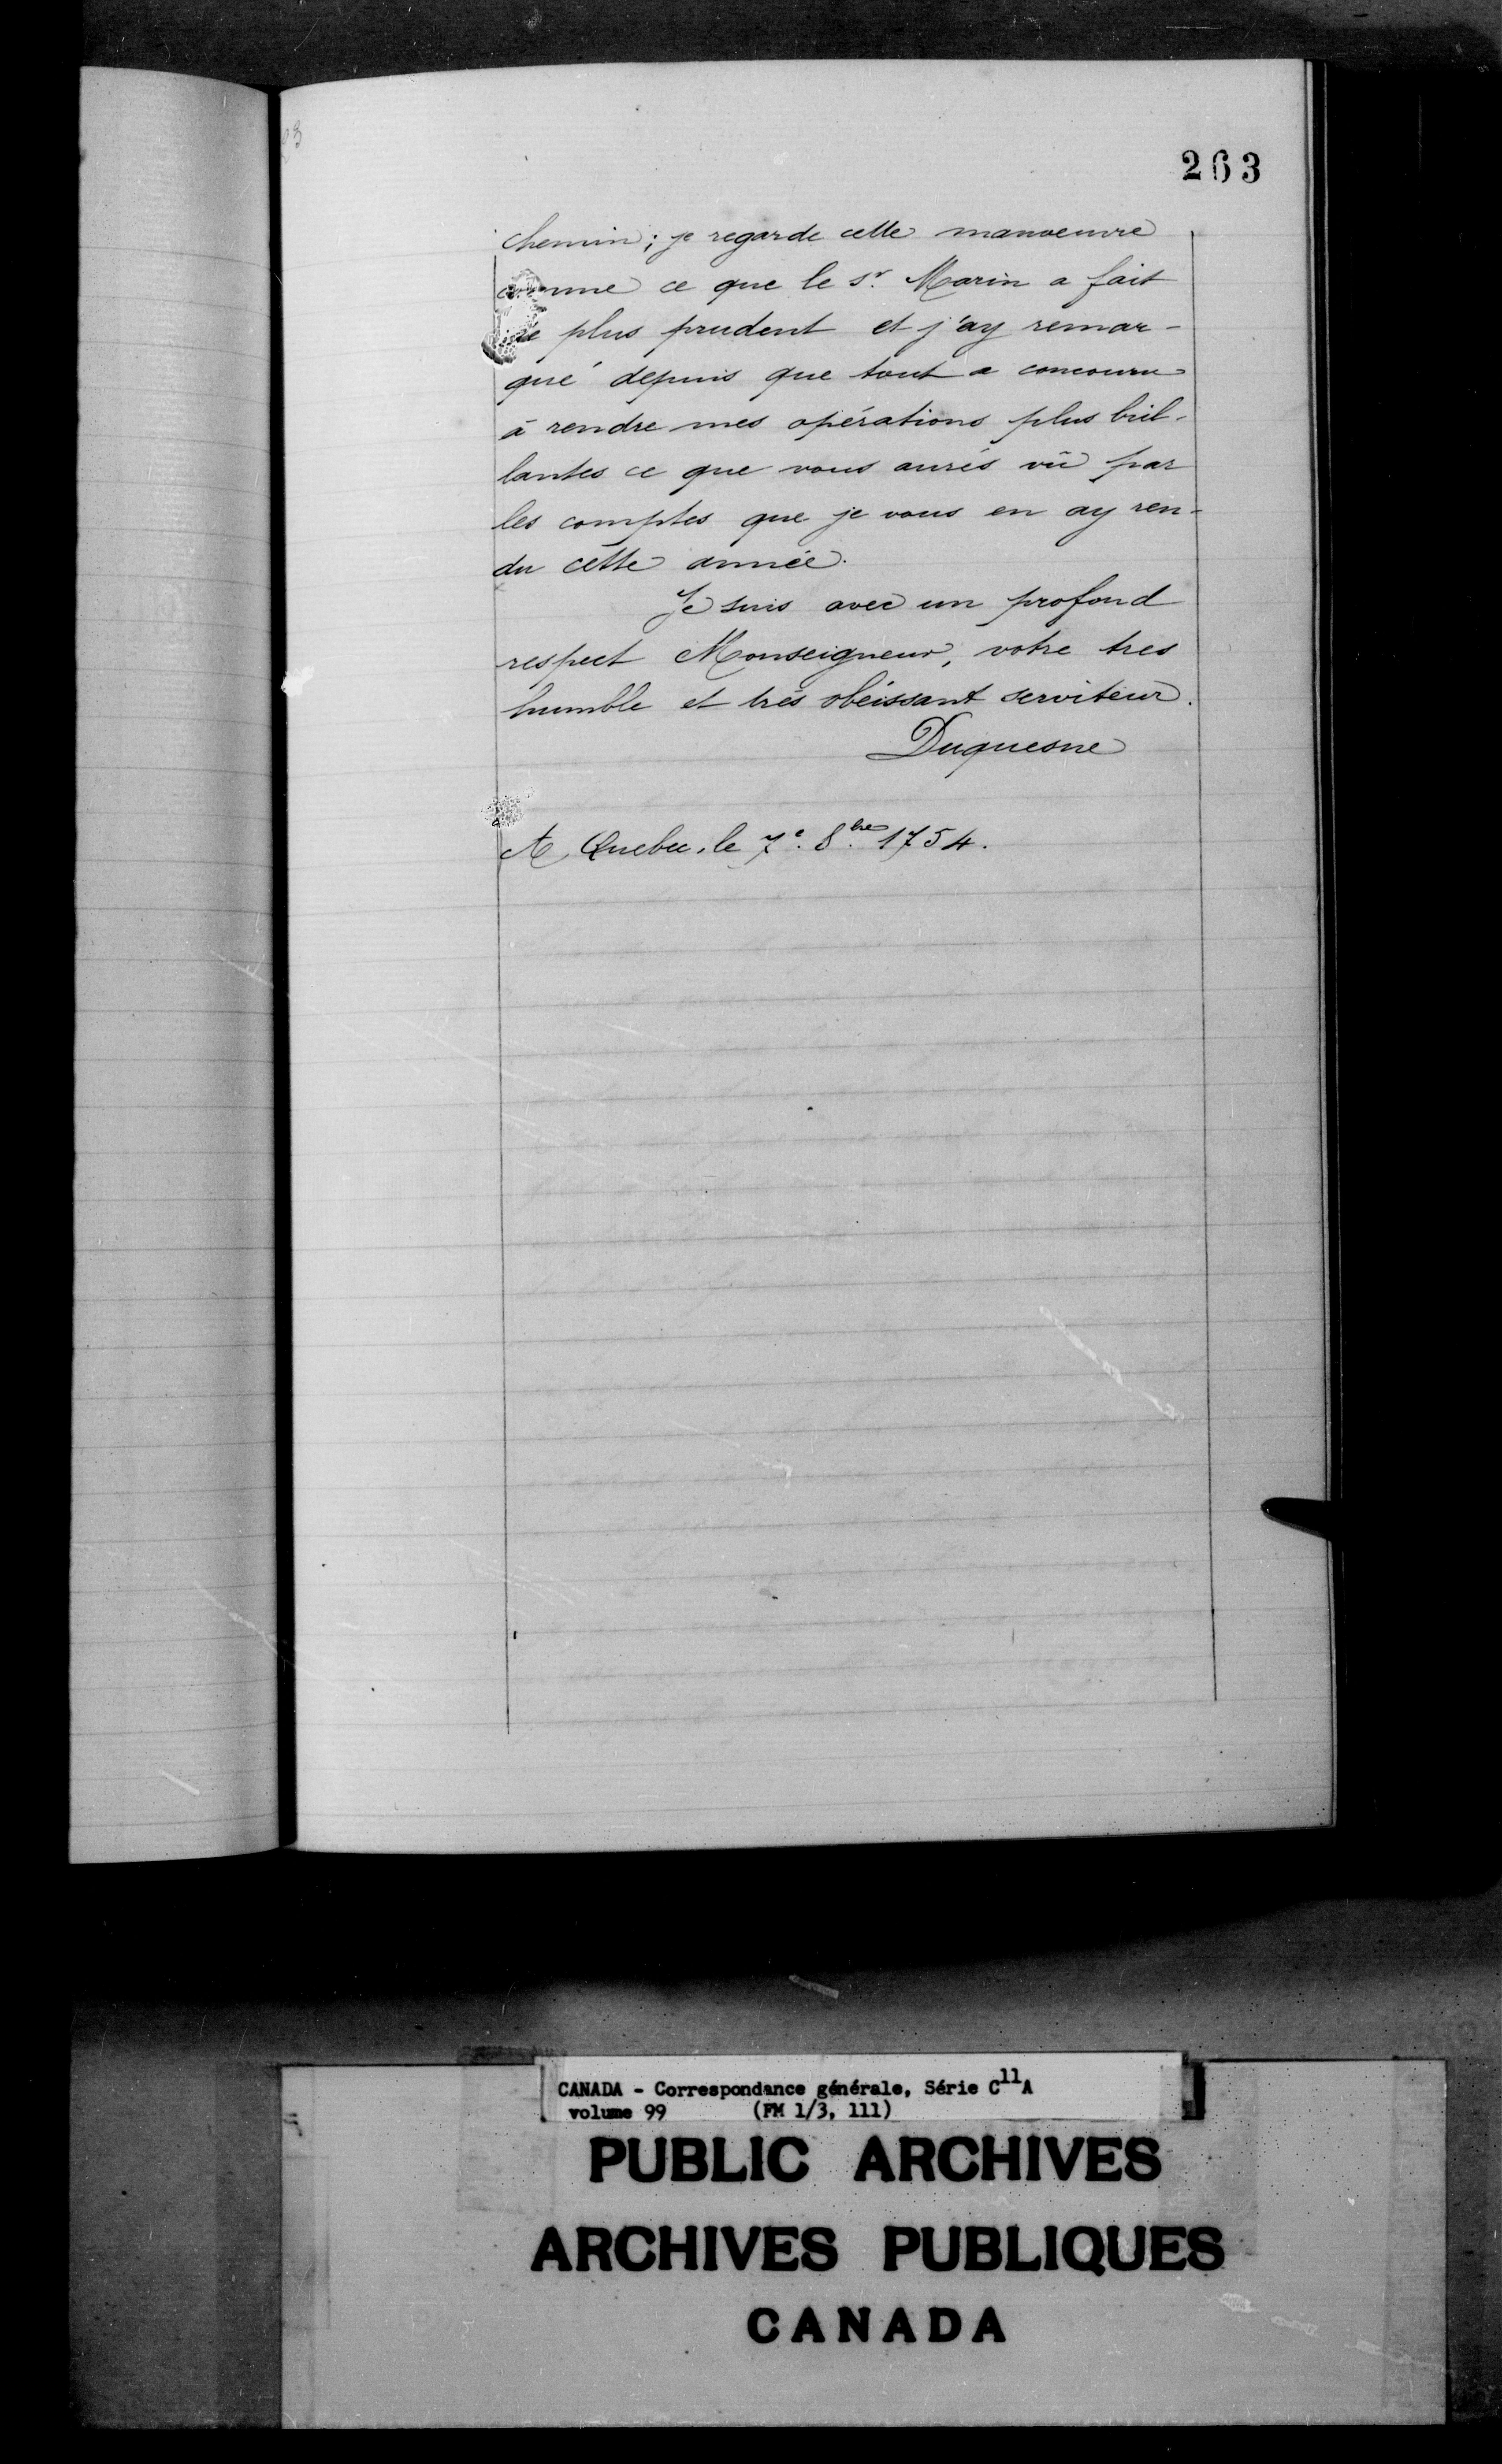 263
chemin; je regarde cette manoeuvre
comme ce que le sr. Marin a fait
de plus prudent et j'ay remar-
qué depuis que tout a concouru
à rendre mes opérations plus bril-
lantes ce que vous aurés vû par
les comptes que je vous en ay ren-
du cette année.
Je suis avec un profond
respect Monseigneur, votre tres
humble et très obéissant serviteur.
Duquesne
A Quebec, le 7e. 8bre. 1754.
CANADA - Correspondance générale, Série C11A
volume 99 (FM 1/3, 111)
PUBLIC ARCHIVES
ARCHIVES PUBLIQUES
CANADA